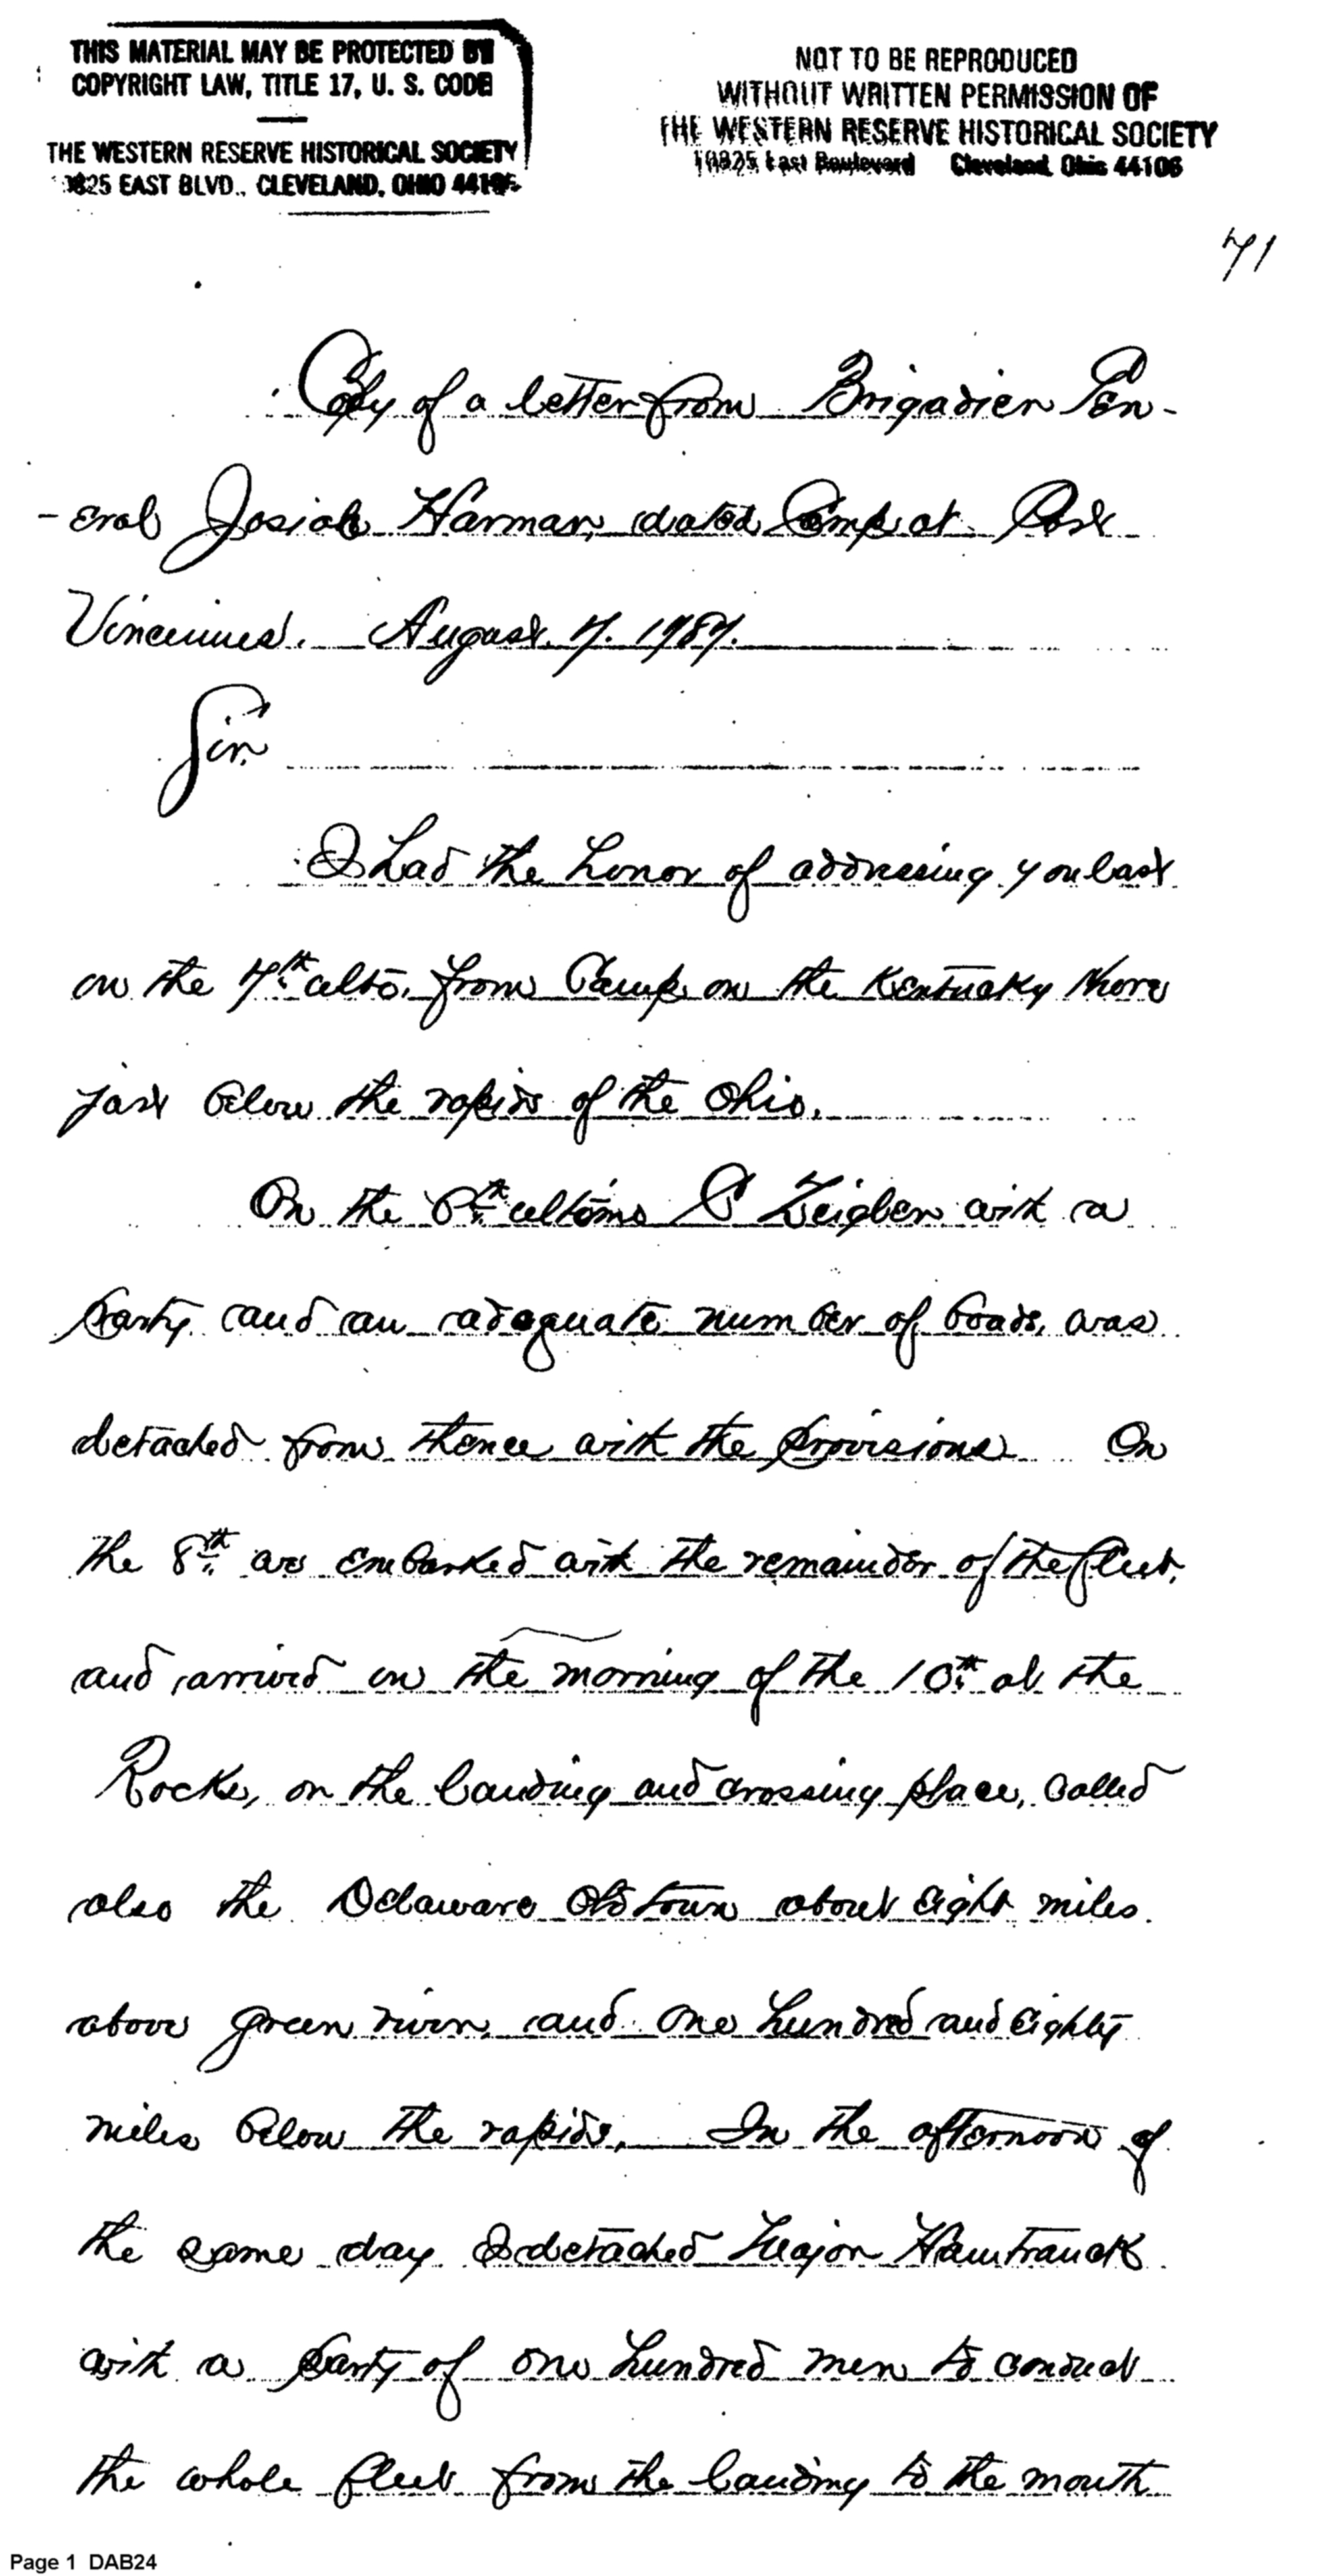 THIS MATERIAL MAY BE PROTECTED BY
COPYRIGHT LAW, TITLE 17, U. S. CODE
THE WESTERN RESERVE HISTORICAL SOCIETY
10825 EAST BLVD., CLEVELAND, OHIO 44106
NOT TO BE REPRODUCED
WITHOUT WRITTEN PERMISSION OF
THE WESTERN RESERVE HISTORICAL SOCIETY
10825 East Boulevard Cleveland, Ohio 44106
71
Copy of a letter from Brigadier Gen-
-eral Josiah Harmar, dated Camp at Post
Vincennes. August 7. 1787.
Sir.
I had the honor of addressing you last
on the 7th. ulto. from Camp on the Kentucky shore
just below the rapids of the Ohio.
On the 8th. Zeigler with a
party and an adequate number of boats, was
detached from thence with the provisions On
the 8th. we embarked with the remainder of the fleet,
and arrived on the morning of the 10th. at the
Rocks, on the landing and crossing place, called
also the Delaware Old town about eight miles
above green river, and one hundred and eighty
miles below the rapids. In the afternoon of
the same day I detached Major Hamtramck
with a party of one hundred men to conduct
the whole fleet from the landing to the mouth
Page 1 DAB24